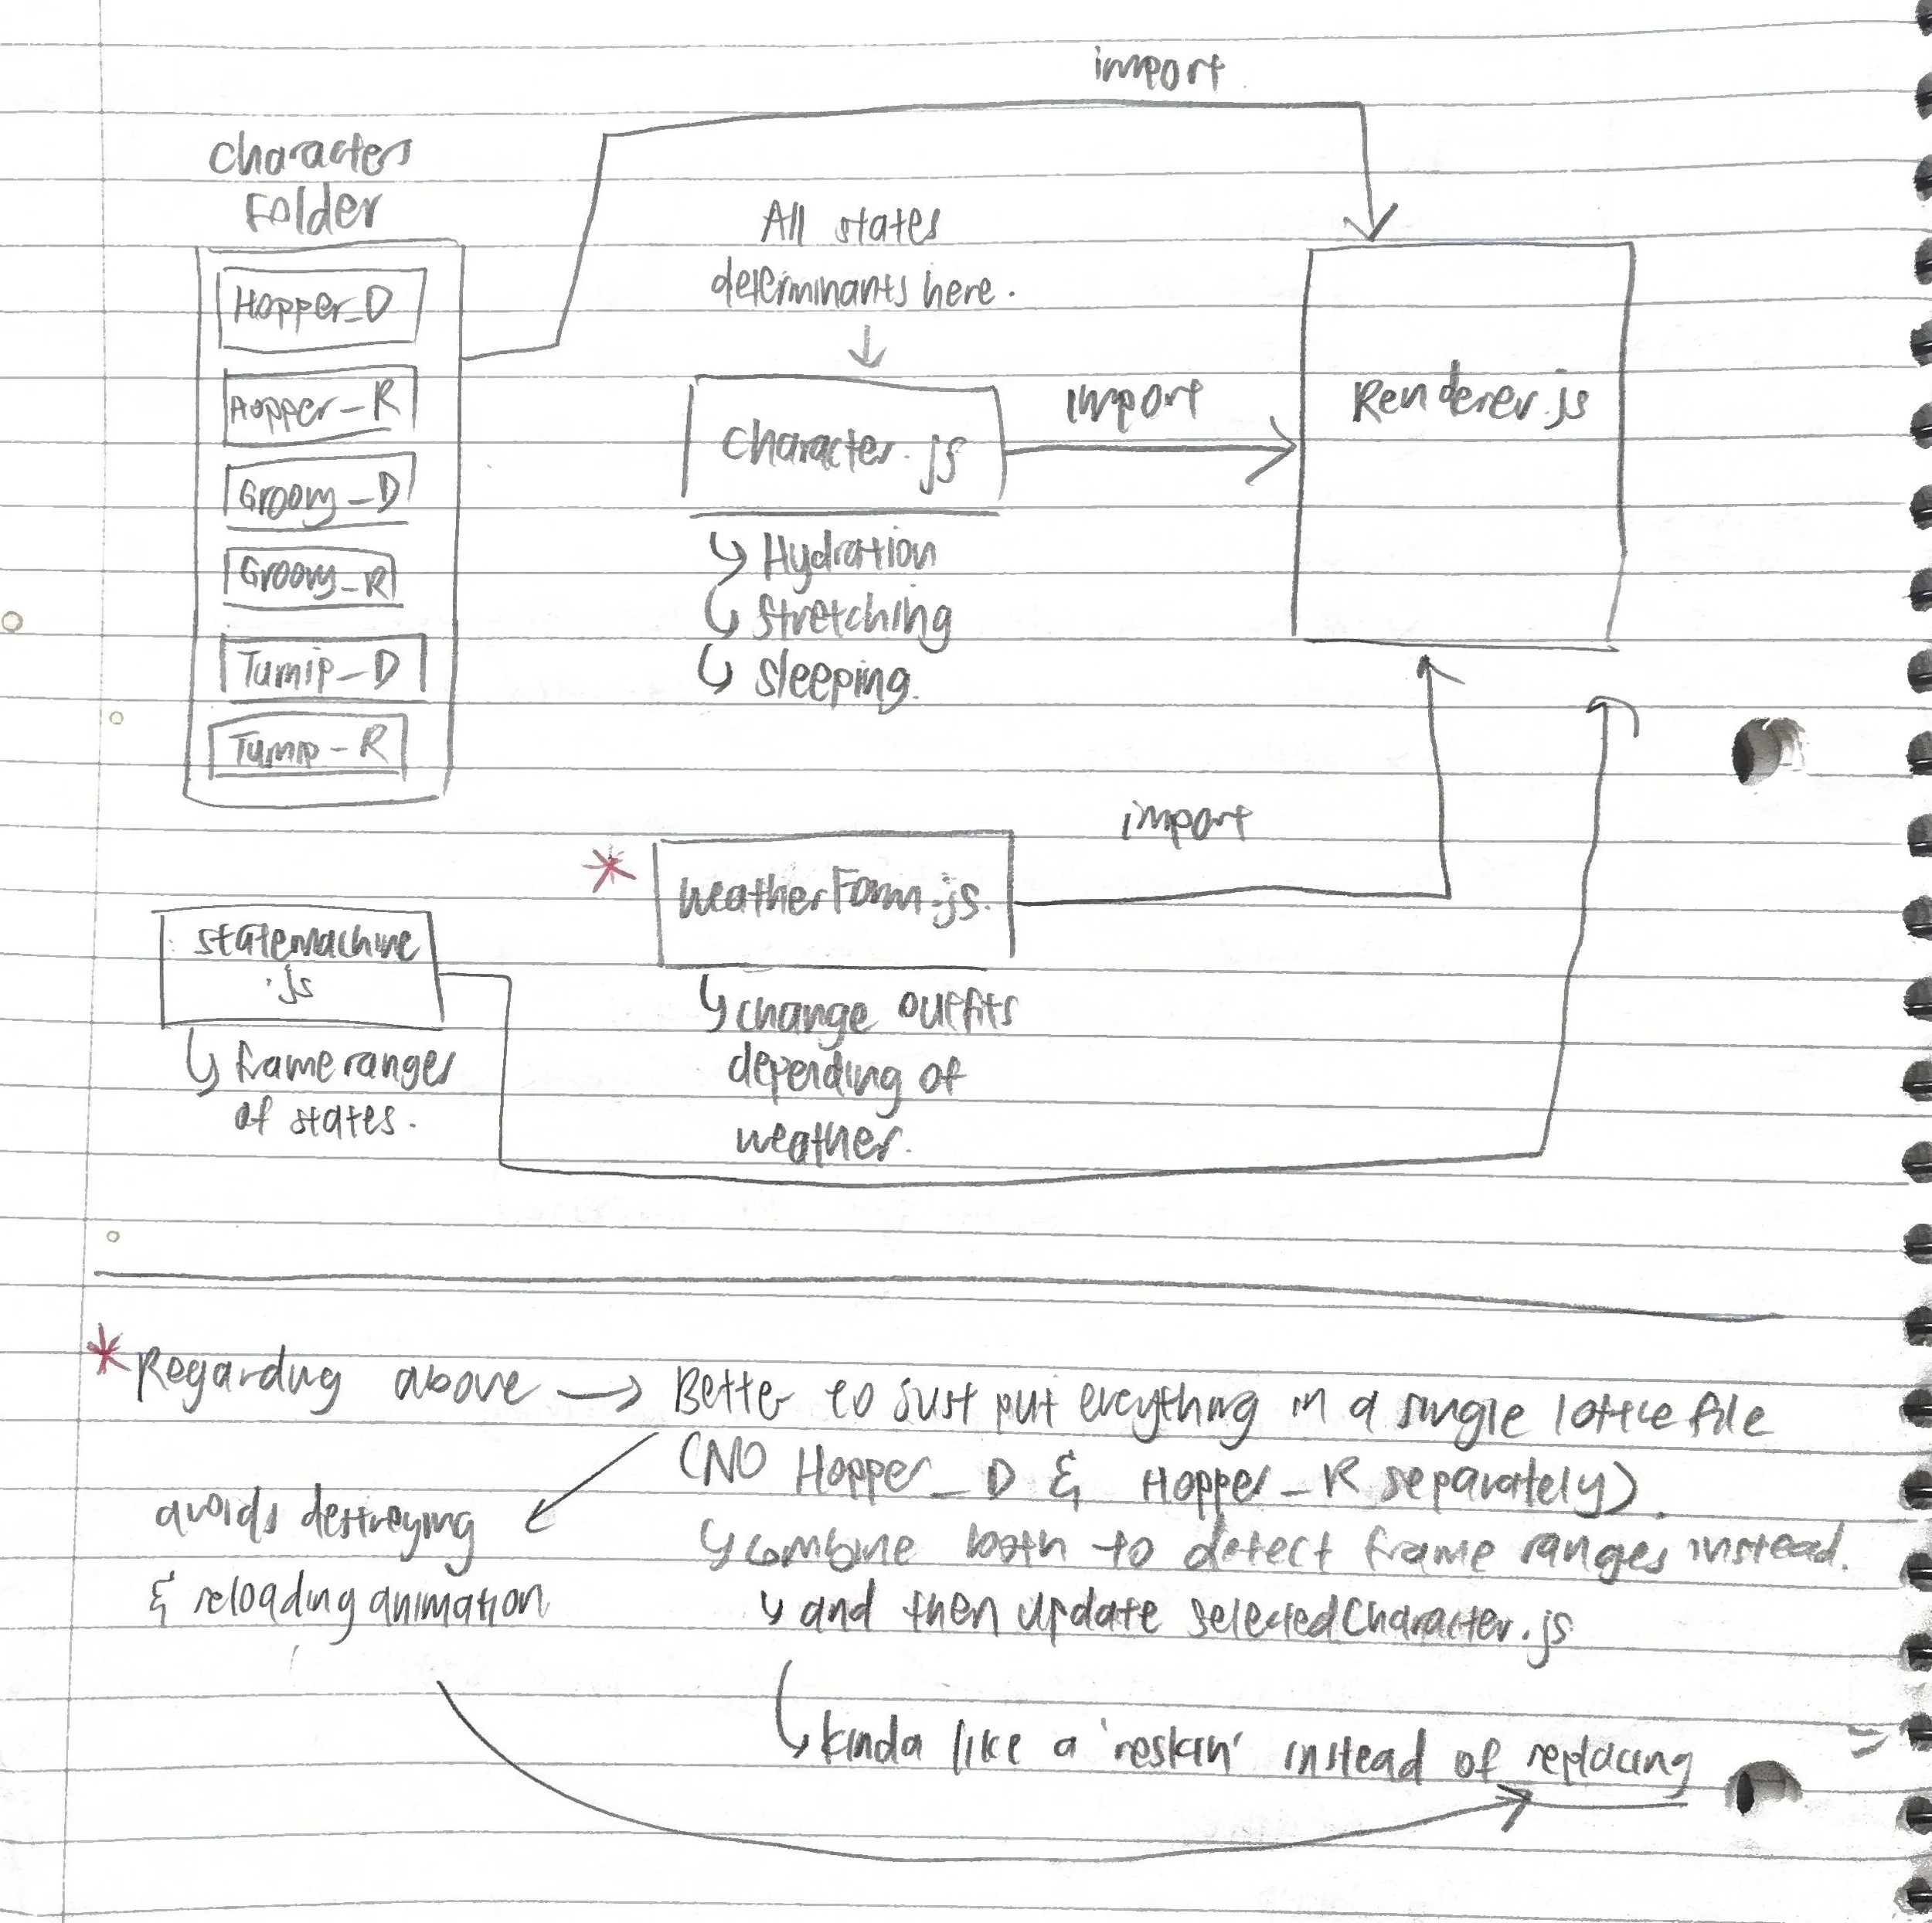 import
characters
Folder
All states
determinants here.
Hopper_D
Hopper_R
Groovy_D
Groovy_R
Turnip_D
Turnip-R
character.js
import
Renderer.js
Hydration
stretching
sleeping.
* WeatherForm.js
import
change outfits
depending of
weather.
statemachine
.js
frame ranges
of states.
* Regarding above → Better to just put everything in a single lottie file
(NO Hopper_D & Hopper_R separately).
combine both to detect frame ranges instead.
and then update selectedCharacter.js
kinda like a 'reskin' instead of replacing
avoids destroying
& reloading animation